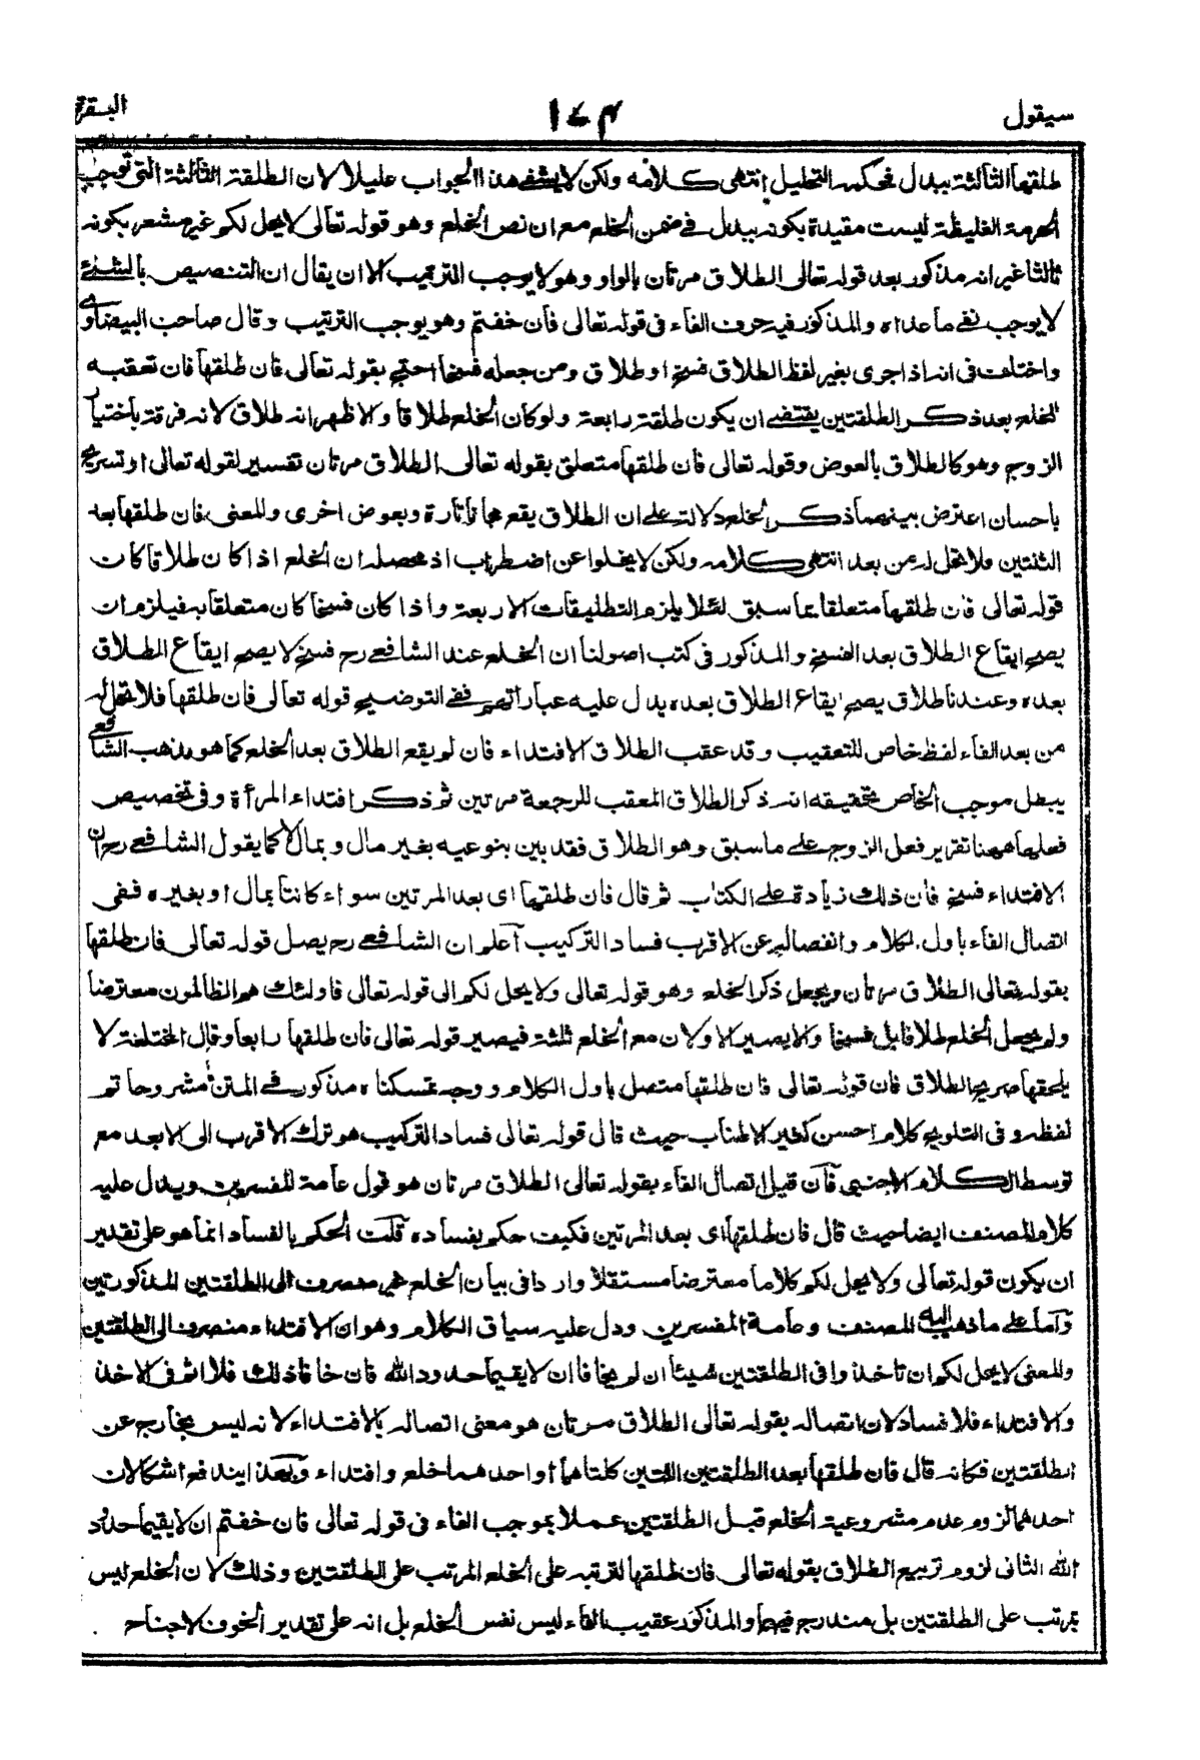 سيقول
١٤٣
البقرة
طلقها الثالثة ببدل فحكمه التحليل انتهى كلامه ولكن لا يشفى هذا الجواب عليلا لان الطلقة الثالثة التى توجب
الحرمة الغليظة ليست مقيدة بكونه ببدل فى ضمن الخلع مع ان نص الخلع وهو قوله تعالى لا يحل لكم غير مشعر بكونه
ثالثا غير انه مذكور بعد قوله تعالى الطلاق مرتان بالواو وهو لا يوجب الترتيب الا ان يقال ان التنصيص بالشئ
لا يوجب نفى ما عداه والمذكور فيه حرف الفاء فى قوله تعالى فان خفتم وهو يوجب الترتيب وقال صاحب البيضاوى
واختلف فى انه اذا جرى بغير لفظ الطلاق فسخ او طلاق ومن جعله فسخا احتج بقوله تعالى فان طلقها فان تعقبه
للخلع بعد ذكر الطلقتين يقتضى ان يكون طلقة رابعة ولو كان الخلع طلاقا والاظهر انه طلاق لانه فرقة باختيار
الزوج وهو كالطلاق بالعوض وقوله تعالى فان طلقها متعلق بقوله تعالى الطلاق مرتان تفسير لقوله تعالى او تسريح
باحسان اعترض بينهما ذكر الخلع دلالة على ان الطلاق يقع مجانا تارة وبعوض اخرى والمعنى فان طلقها بعد
الثنتين فلا تحل له من بعد انتهى كلامه ولكن لا يخلوا عن اضطراب اذ محصله ان الخلع اذا كان طلاقا كان
قوله تعالى فان طلقها متعلقا بما سبق لئلا يلزم التطليقات الاربعة واذا كان فسخا كان متعلقا به فيلزم ان
يصح ايقاع الطلاق بعد الفسخ والمذكور فى كتب اصولنا ان الخلع عند الشافعى رح فسخ لا يصح ايقاع الطلاق
بعده وعندنا طلاق يصح ايقاع الطلاق بعده يدل عليه عباراتهم ففى التوضيح قوله تعالى فان طلقها فلا تحل له
من بعد الفاء لفظ خاص للتعقيب وقد عقب الطلاق الافتداء فان لم يقع الطلاق بعد الخلع كما هو مذهب الشافعى
يبطل موجب الخاص تحقيقه انه ذكر الطلاق المعقب للرجعة مرتين ثم ذكر افتداء المرأة وفى تخصيص
فعلها ههنا تقرير فعل الزوج على ما سبق وهو الطلاق فقد بين بنوعيه بغير مال وبمال لا كما يقول الشافعى رح ان
الافتداء فسخ فان ذلك زيادة على الكتاب ثم قال فان طلقها اى بعد المرتين سواء كانتا بمال او بغيره ففى
اتصال الفاء باول الكلام وانفصاله عن الاقرب فساد التركيب اعلم ان الشافعى رح يصل قوله تعالى فان طلقها
بقوله تعالى الطلاق مرتان ويجعل ذكر الخلع وهو قوله تعالى ولا يحل لكم الى قوله تعالى فاولئك هم الظالمون معترضا
ولم يجعل الخلع طلاقا بل فسخا والا يصير الاولان مع الخلع ثلثة فيصير قوله تعالى فان طلقها رابعا وقال المختلعة لا
يلحقها صريح الطلاق فان قوله تعالى فان طلقها متصل باول الكلام ووجه تمسكنا مذكور فى المتن مشروحا تم
لفظه وفى التلويح كلام احسن كثير الاطناب حيث قال قوله تعالى فساد التركيب هو ترك الاقرب الى الابعد مع
توسط الكلام الاجنبى فان قيل اتصال الفاء بقوله تعالى الطلاق مرتان هو قول عامة المفسرين ويدل عليه
كلام المصنف ايضا حيث قال فان طلقها اى بعد المرتين فكيف حكم بفساده قلت الحكم بالفساد انما هو على تقدير
ان يكون قوله تعالى ولا يحل لكم كلاما معترضا مستقلا واردا فى بيان الخلع غير منصرف الى الطلقتين المذكورتين
واما على ما ذهب اليه المصنف وعامة المفسرين ودل عليه سياق الكلام وهو ان الافتداء منصرف الى الطلقتين
والمعنى لا يحل لكم ان تاخذوا فى الطلقتين شيئا ان لم يخافا ان لا يقيما حدود الله فان خافا ذلك فلا اثم فى الاخذ
والافتداء فلا فساد لان اتصاله بقوله تعالى الطلاق مرتان هو معنى اتصاله بالافتداء لانه ليس بخارج عن
الطلقتين فكانه قال فان طلقها بعد الطلقتين اللتين كلتاهما او احدهما خلع وافتداء وبعد ايندفع اشكالان
احدهما لزوم عدم مشروعية الخلع قبل الطلقتين عملا بموجب الفاء فى قوله تعالى فان خفتم ان لا يقيما حدود
الله الثانى لزوم تربيع الطلاق بقوله تعالى فان طلقها لترتبه على الخلع المرتب على الطلقتين وذلك لان الخلع ليس
بمرتب على الطلقتين بل مندرج فيهما والمذكور عقيب الفاء ليس نفس الخلع بل انه على تقدير الخوف لا جناح